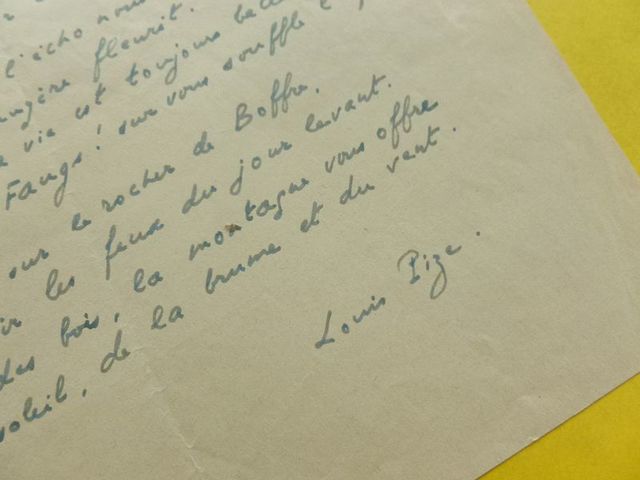 l'écho nous
fleurit.
vie est toujours belle
Faugs! sur vous souffle
sur le rocher de Boffre,
les feux du jour levant.
des bois, la montagne vous offre
soleil, de la brume et du vent.
Louis Pize.